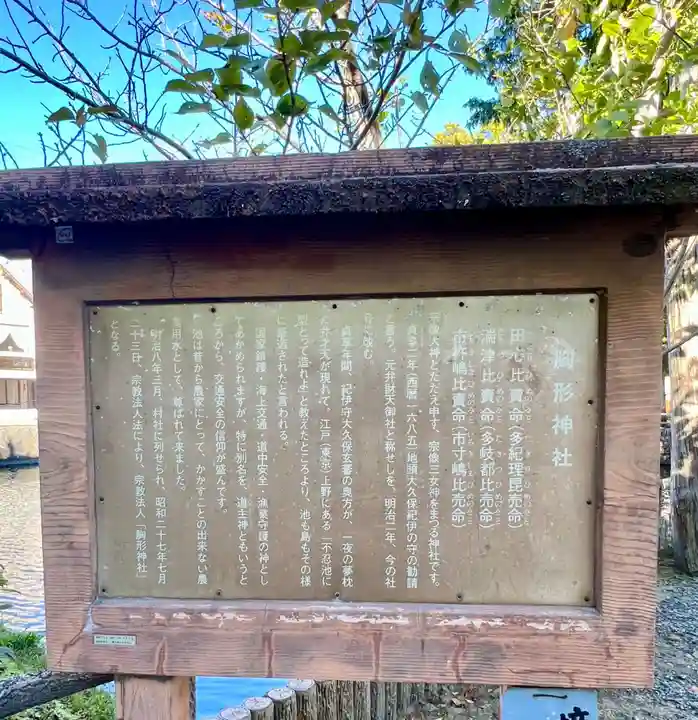 胸形神社
田心比賣命(多紀理昆売命)
湍津比賣命(多岐都比売命)
市杵嶋比賣命(市寸嶋比売命)
宗像大神とたたえ申す、宗像三女神をまつる神社です。
貞享二年(西暦一六八五)地頭大久保紀伊の守の勧請
と言う、元弁財天御社と称せしを、明治二年、今の社
号に改む。
貞享年間、紀伊守大久保玄蕃の奥方が、一夜の夢枕
に弁才天が現れて、江戸(東京)上野にある「不忍池に
型とって造れよ」と教えたところより、池も島もその様
に築造されたと言われる。
国家鎮護・海上交通・道中安全・漁業守護の神とし
てあがめられますが、特に別名を、道主神ともいうと
ころから、交通安全の信仰が盛んです。
池は昔から農家にとって、かかすことの出来ない農
業用水として、尊ばれて来ました。
明治八年三月、村社に列せられ、昭和二十七年七月
二十三日、宗教法人法により、宗教法人「胸形神社」
となる。